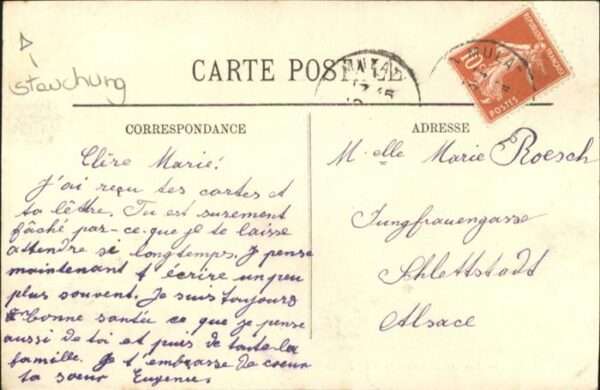 stauchung
CARTE POSTALE
CORRESPONDANCE
Chère Marie!
J'ai reçu tes cartes et
ta lêttre. Tu est surement
fâché par-ce-que je te laisse
attendre si longtemps. Je pense
maintenant t'écrire un peu
plus souvent. Je suis toujours
bonne santée ce que je pense
aussi de toi et puis de toute la
famille. Je t'embrasse de coeur
ta soeur Eugenie.
ADRESSE
M.elle Marie Roesch
Jungfrauengasse
Schlettstadt
Alsace
10
POSTES